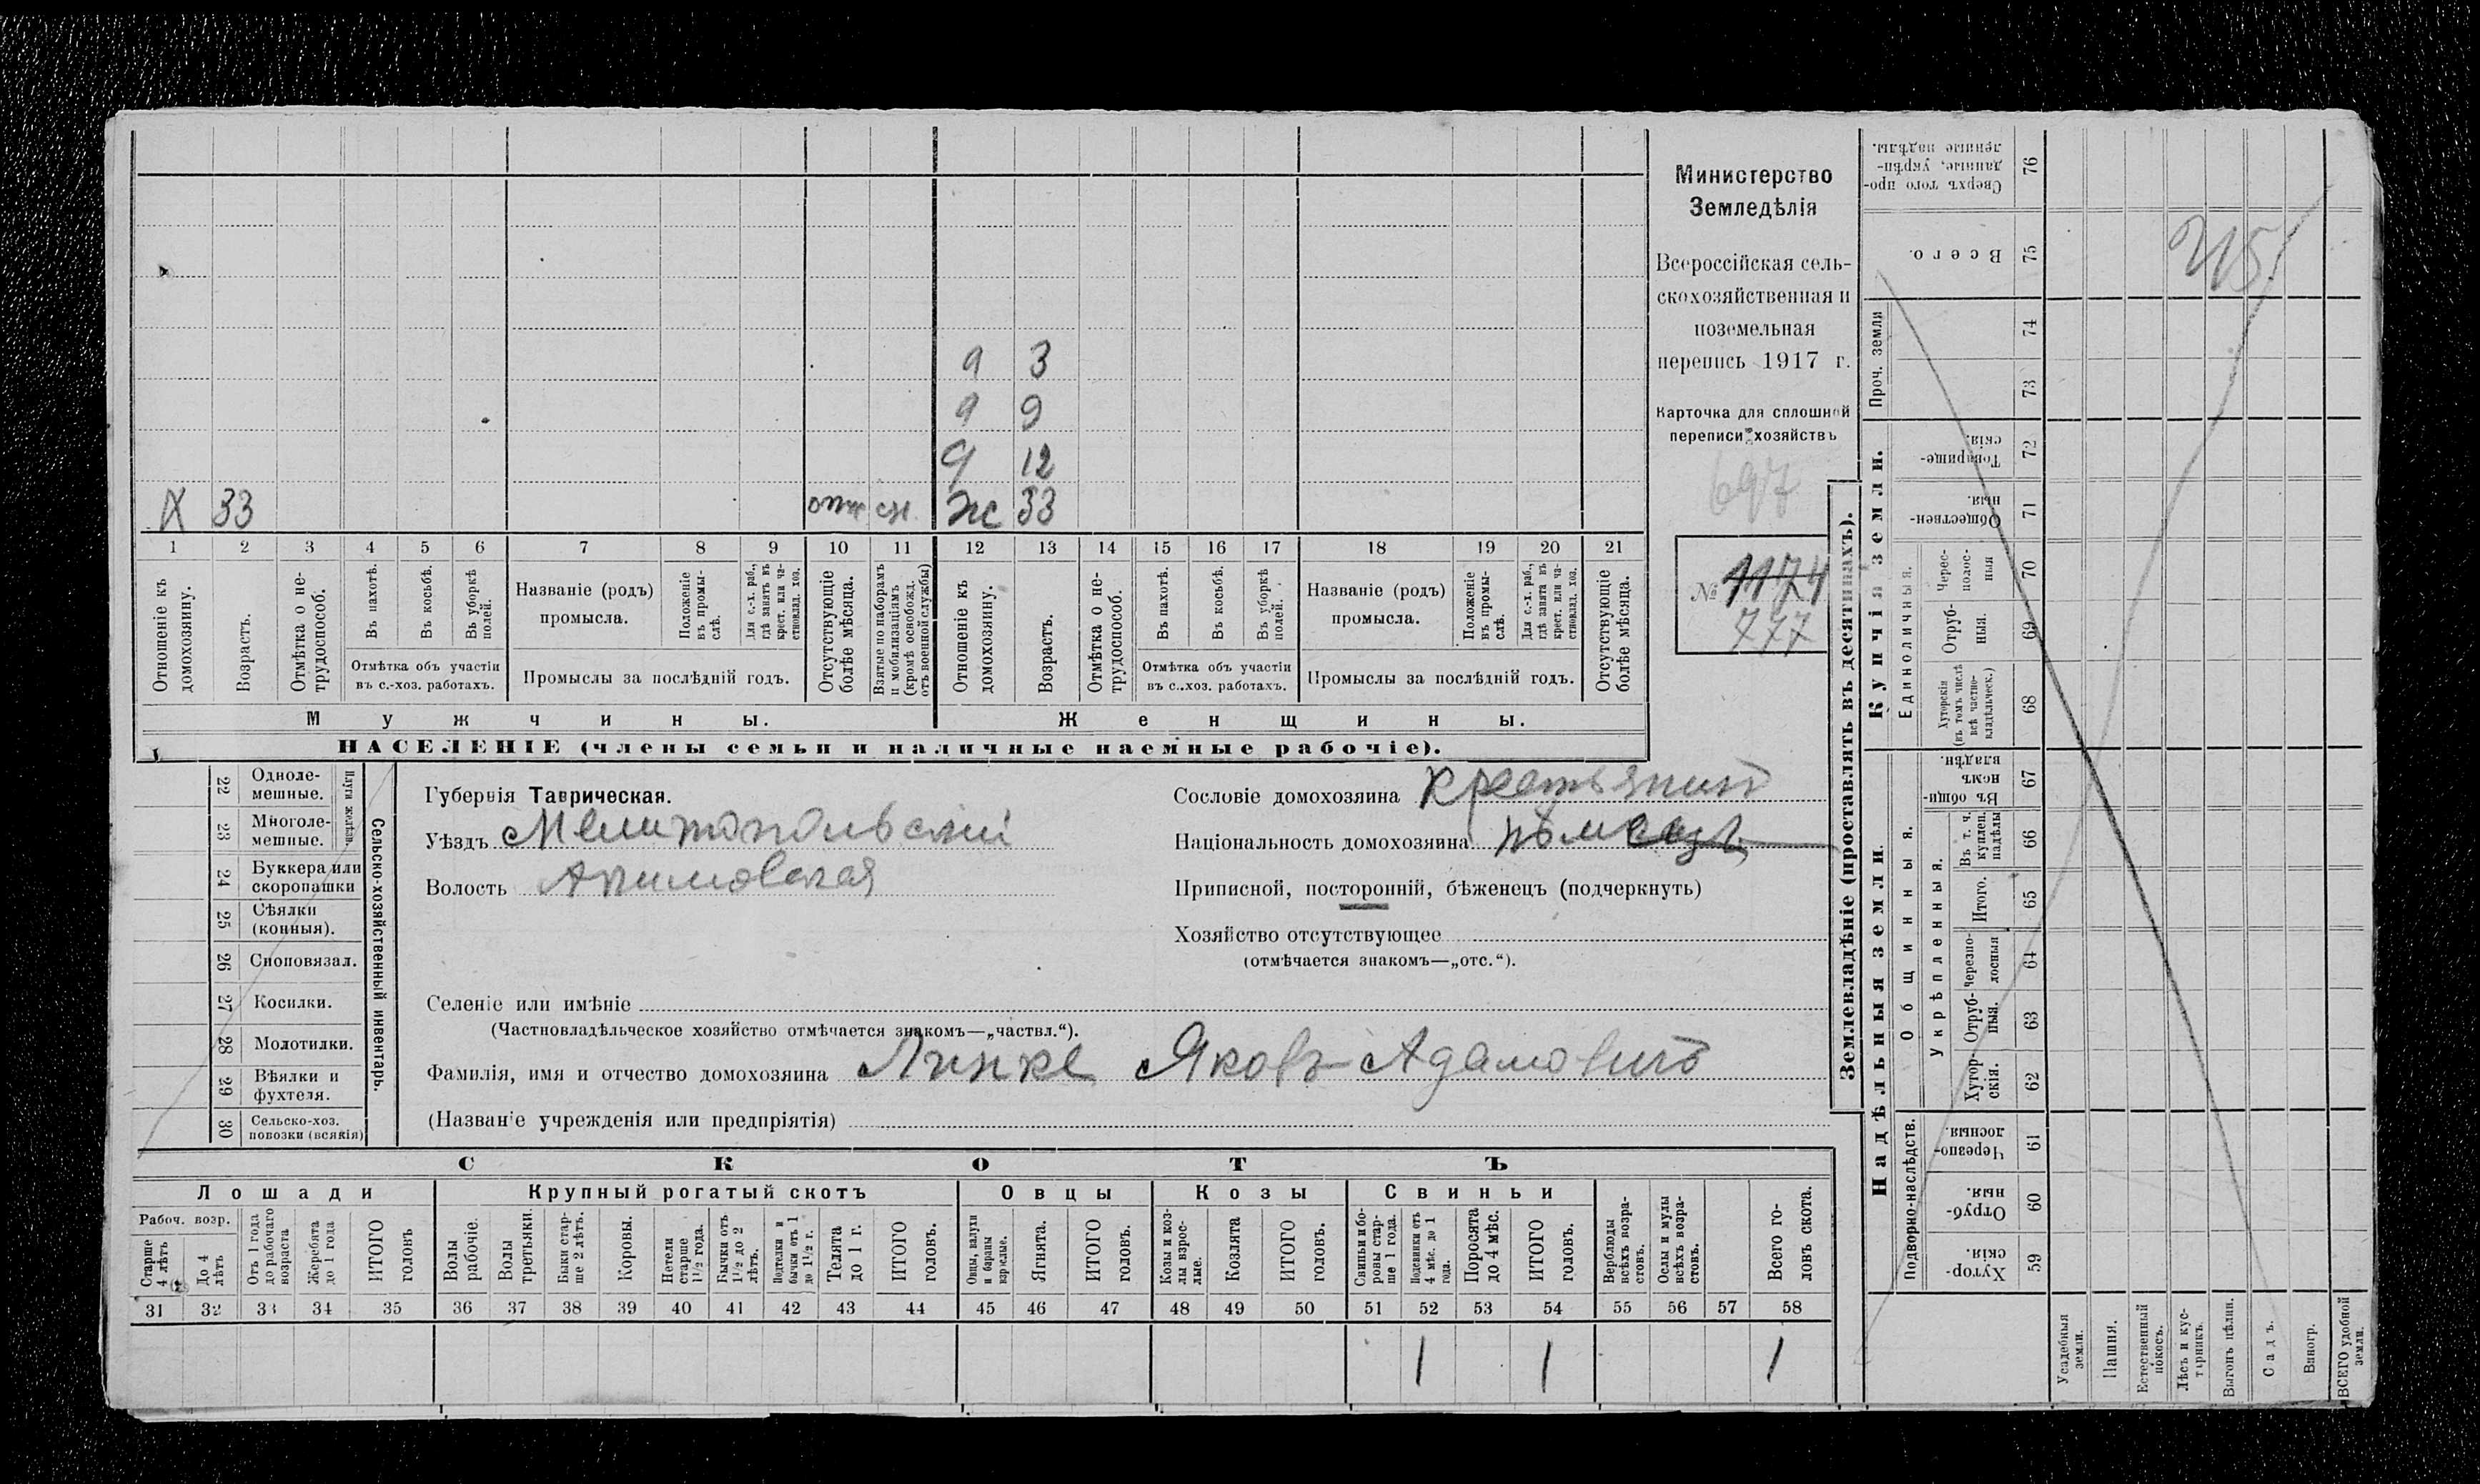 Министерство
Земледѣлія
Всероссійская сель-
скохозяйственная и
поземельная
перепись 1917 г.
Карточка для сплошной
переписи хозяйствъ
697
№ 1174
777
д 3
д 9
д 12
Х 33 отс сл. ж 33
1 2 3 4 5 6 7 8 9 10 11 12 13 14 15 16 17 18 19 20 21
Отношеніе къ домохозяину.
Возрастъ.
Отмѣтка о не-трудоспособ.
Въ пахотѣ.
Въ косьбѣ.
Въ уборкѣ полей.
Отмѣтка объ участіи
въ с.-хоз. работахъ.
Названіе (родъ)
промысла.
Положеніе въ промы-слѣ.
Для с.-х. раб., гдѣ занятъ въ крест. или ча-стновлад. хоз.
Промыслы за послѣдній годъ.
Отсутствующіе болѣе мѣсяца.
Взятые по наборамъ и мобилизаціямъ (кромѣ освобожд. отъ военной службы)
Отношеніе къ домохозяину.
Возрастъ.
Отмѣтка о не-трудоспособ.
Въ пахотѣ.
Въ косьбѣ.
Въ уборкѣ полей.
Отмѣтка объ участіи
въ с..хоз. работахъ.
Названіе (родъ)
промысла.
Положеніе въ промы-слѣ.
Для с.-х. раб., гдѣ занята въ крест. или ча-стновлад. хоз.
Промыслы за послѣдній годъ.
Отсутствующіе болѣе мѣсяца.
Мужчины. Женщины.
НАСЕЛЕНІЕ (члены семьи и наличные наемные рабочіе).
22 Одноле-мешные.
23 Многоле-мешные.
Плуги желѣзн.
24 Буккера или скоропашки
25 Сѣялки (конныя).
26 Сноповязал.
27 Косилки.
28 Молотилки.
29 Вѣялки и фухтеля.
30 Сельско-хоз. повозки (всякія)
Сельско-хозяйственный инвентарь.
Губернія Таврическая.
Уѣздъ Мелитопольскій
Волость Акимовская
Сословіе домохозяина крестьянинъ
Національность домохозяина нѣмецъ
Приписной, посторонній, бѣженецъ (подчеркнуть)
Хозяйство отсутствующее
(отмѣчается знакомъ—„отс.“).
Селеніе или имѣніе
(Частновладѣльческое хозяйство отмѣчается знакомъ—„частвл.“).
Фамилія, имя и отчество домохозяина Линке Яковъ Адамовичъ
(Названіе учрежденія или предпріятія)
СКОТЪ
Лошади Крупный рогатый скотъ Овцы Козы Свиньи
Рабоч. возр.
Старше 4 лѣтъ
До 4 лѣтъ
Отъ 1 года до рабочаго возраста
Жеребята до 1 года
ИТОГО головъ
Волы рабочіе.
Волы третьяки.
Быки стар-ше 2 лѣтъ.
Коровы.
Нетели старше 1½ года.
Бычки отъ 1½ до 2 лѣтъ.
Подтелки и бычки отъ 1 до 1½ г.
Телята до 1 г.
ИТОГО головъ.
Овцы, валухи и бараны взрослые.
Ягнята.
ИТОГО головъ.
Козы и коз-лы взрос-лые.
Козлята
ИТОГО головъ.
Свиньи и бо-ровы стар-ше 1 года.
Подсвинки отъ 4 мѣс. до 1 года.
Поросята до 4 мѣс.
ИТОГО головъ.
Верблюды всѣхъ возра-стовъ.
Ослы и мулы всѣхъ возра-стовъ.
Всего го-ловъ скота.
31 32 33 34 35 36 37 38 39 40 41 42 43 44 45 46 47 48 49 50 51 52 53 54 55 56 57 58
1 1 1
Землевладѣніе (проставлять въ десятинахъ).
Надѣльныя земли. Купчія земли.
Проч. земли
Подворно-наслѣдств.
Общинныя.
Укрѣпленныя.
Единоличныя.
Сверхъ того про-данные, укрѣп-ленные надѣлы. 76
Всего. 75
74
73
Товарище-скія. 72
Обществен-ныя. 71
Черес-полос-ныя 70
Отруб-ныя. 69
Хуторскія (въ томъ числѣ всѣ частно-владѣльческ.) 68
Въ общин-номъ владѣн. 67
Въ т. ч. куплен. надѣлы 66
Итого. 65
Черезпо-лосныя 64
Отруб-ныя. 63
Хутор-скія. 62
Черезпо-лосныя. 61
Отруб-ныя. 60
Хутор-скія. 59
Усадебныя земли.
Пашня.
Естественный покосъ.
Лѣсъ и кус-тарникъ.
Выгонъ цѣлин.
Садъ.
Виногр.
ВСЕГО удобной земли.